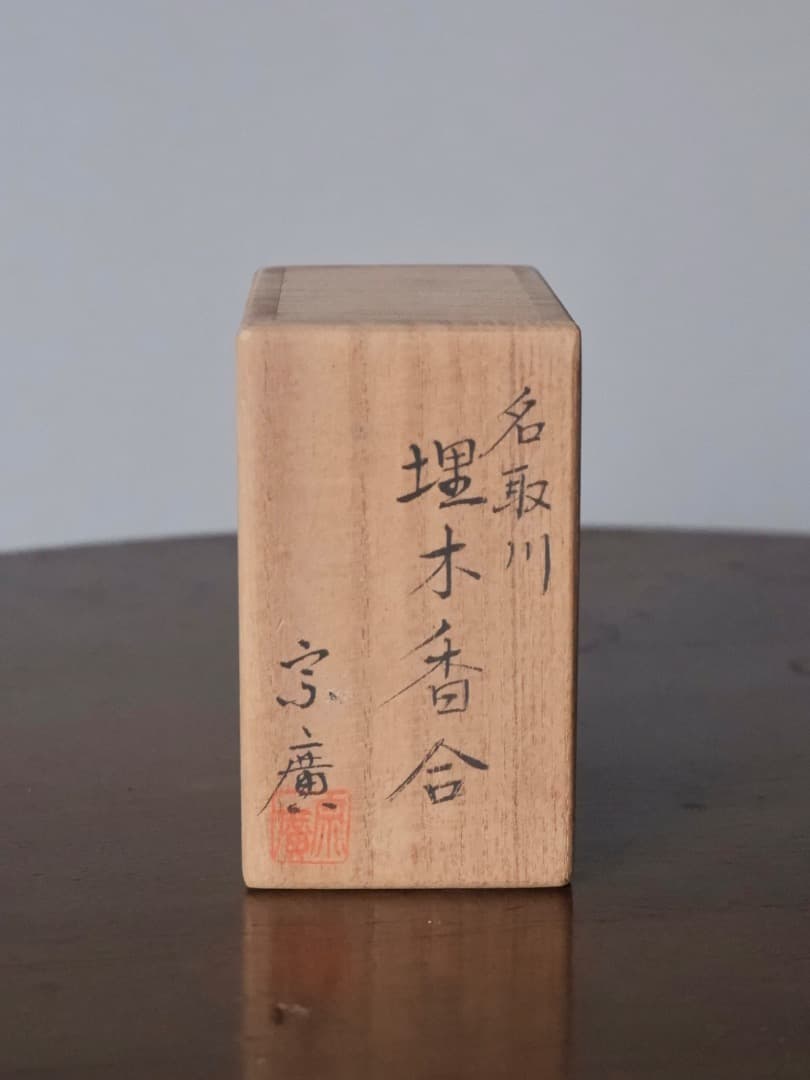 名取川
埋木香合
宗廣
宗廣